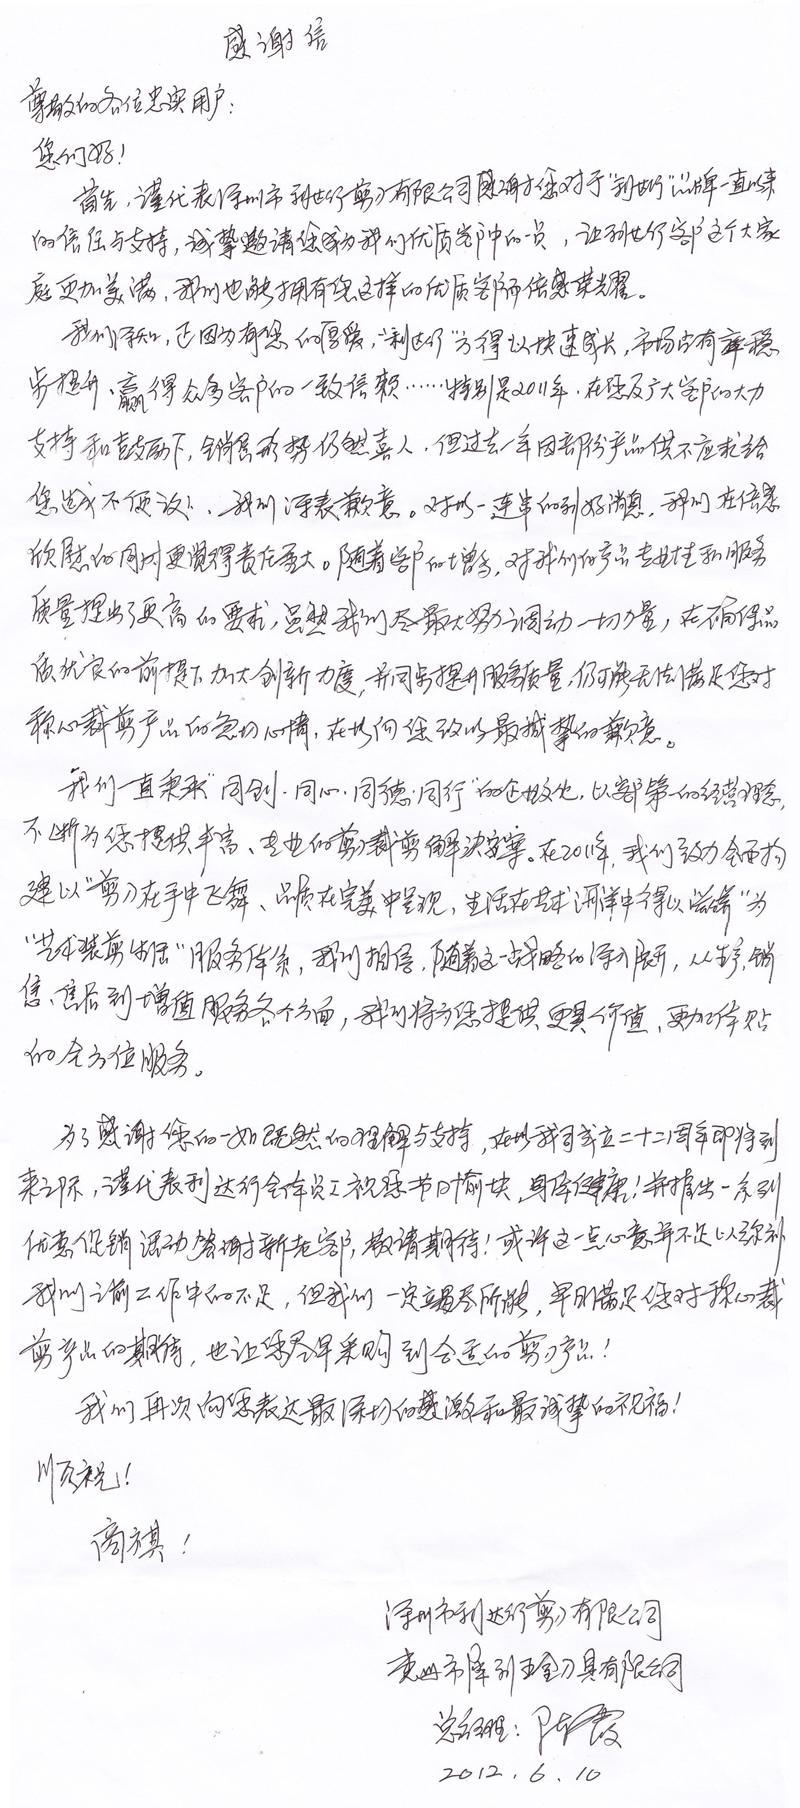 感谢信
尊敬的各位忠实用户：
您们好！
首先，谨代表深圳市利达行剪刀有限公司感谢您对于“利达行”品牌一直以来
的信任与支持，诚挚邀请您成为我们优质客户中的一员，让利达行客户这个大家
庭更加美满，我们也能拥有您这样的优质客户而倍感荣耀。
我们深知，正因为有您的厚爱，“利达行”方得以快速成长，市场占有率稳
步提升、赢得众多客户的一致信赖……特别是2011年，在您及广大客户的大力
支持和鼓励下，销售形势仍然喜人，但过去一年因部份产品供不应求给
您造成不便之处、我们深表歉意。对此一连串的利好消息，我们在倍感
欣慰的同时更觉得责任重大。随着客户的增多，对我们的产品专业性和服务
质量提出了更高的要求，虽然我们尽最大努力调动一切力量，在确保品
质优良的前提下加大创新力度，并同步提升服务质量，仍可能无法满足您对
称心裁剪产品的急切心情，在此向您致以最诚挚的歉意。
我们一直秉承“同创·同心·同德·同行”的企业文化，以客户第一的经营理念，
不断为您提供丰富、专业的剪刀裁剪解决方案。在2011年，我们致力全面构
建以“剪刀在手中飞舞、品质在完美中呈现，生活在艺术海洋中得以滋养”为
“艺术裁剪生活”服务体系，我们相信，随着这一战略的深入展开，从生产、销
售、售后到增值服务各个方面，我们将为您提供更具价值、更加体贴
的全方位服务。
为了感谢您的一如既然的理解与支持，在此我司成立二十二周年即将到
来之际，谨代表利达行全体员工祝您节日愉快，身体健康！并推出一系列
优惠促销活动答谢新老客户，敬请期待！或许这一点心意并不足以弥补
我们之前工作中的不足，但我们一定竭尽所能，早日满足您对称心裁
剪产品的期待，也让您尽早采购到合适的剪刀产品！
我们再次向您表达最深切的感激和最诚挚的祝福！
顺祝！
商祺！
深圳市利达行剪刀有限公司
惠州市隆利五金刀具有限公司
总经理：陈霞
2012.6.10